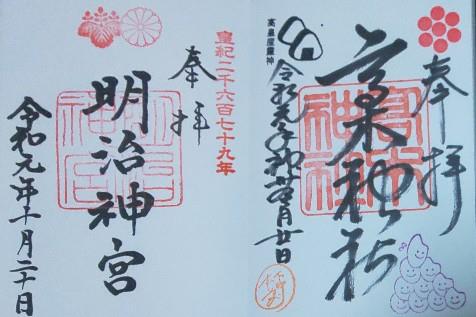 奉拝
高木神社
令和元年神無月廿日
高皇産靈神
皇紀二千六百七十九年
奉拝
明治神宮
令和元年十月二十日